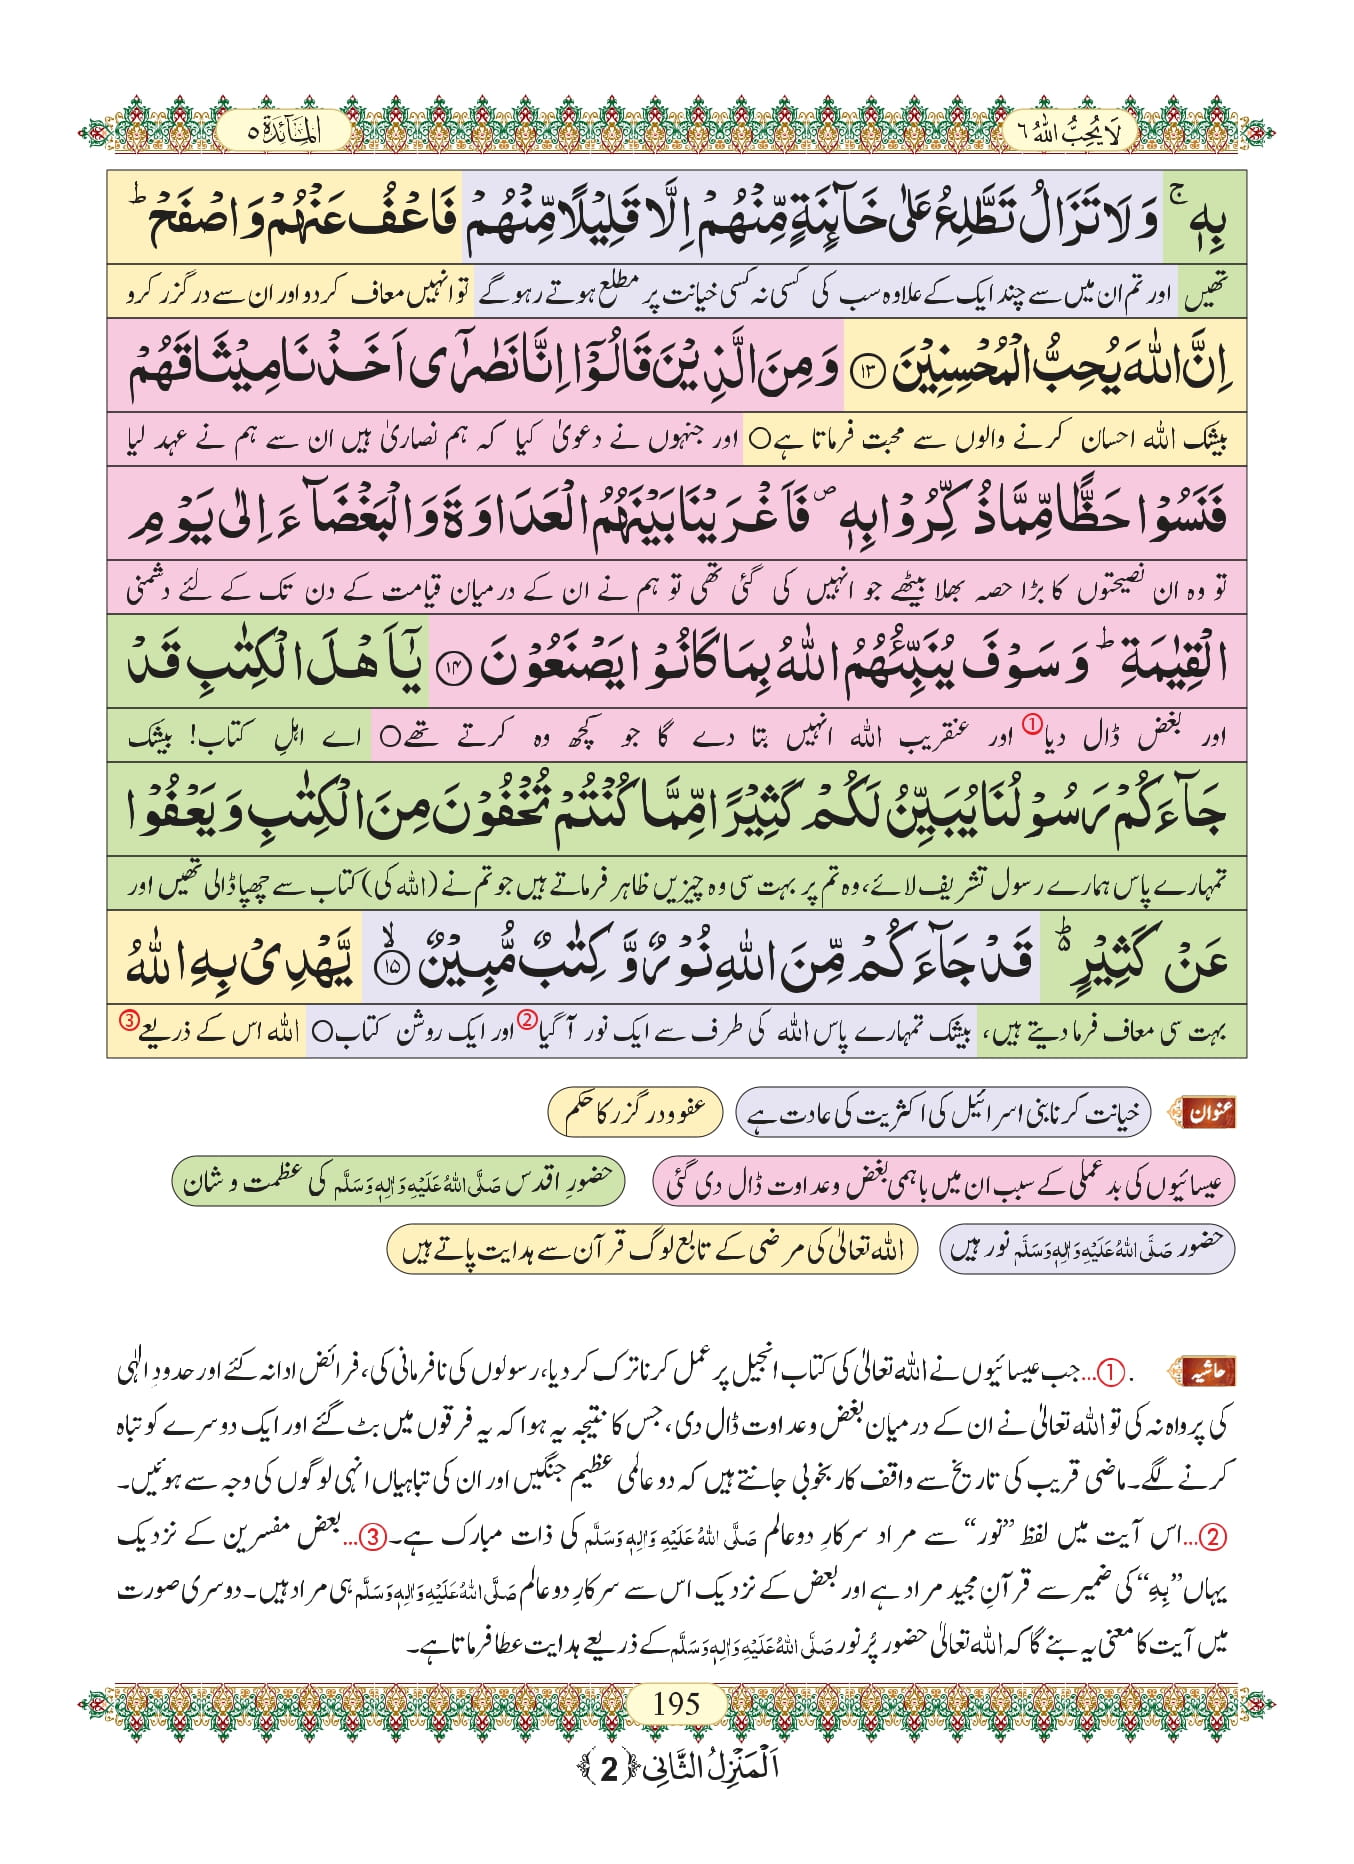 لَا یُحِبُّ اللّٰهُ ٦
اَلْمَآئِدَة ٥
بِهٖ ۚ وَ لَا تَزَالُ تَطَّلِعُ عَلٰى خَآىٕنَةٍ مِّنْهُمْ اِلَّا قَلِیْلًا مِّنْهُمْ فَاعْفُ عَنْهُمْ وَ اصْفَحْ ؕ
تھیں اور تم ان میں سے چند ایک کے علاوہ سب کی کسی نہ کسی خیانت پر مطلع ہوتے رہو گے تو انہیں معاف کردو اور ان سے درگزر کرو
اِنَّ اللّٰهَ یُحِبُّ الْمُحْسِنِیْنَ ﴿۱۳﴾ وَ مِنَ الَّذِیْنَ قَالُوْۤا اِنَّا نَصٰرٰۤى اَخَذْنَا مِیْثَاقَهُمْ
بیشک اللہ احسان کرنے والوں سے محبت فرماتا ہے○ اور جنہوں نے دعویٰ کیا کہ ہم نصاریٰ ہیں ان سے ہم نے عہد لیا
فَنَسُوْا حَظًّا مِّمَّا ذُكِّرُوْا بِهٖ ۪ فَاَغْرَیْنَا بَیْنَهُمُ الْعَدَاوَةَ وَ الْبَغْضَآءَ اِلٰى یَوْمِ
تو وہ ان نصیحتوں کا بڑا حصہ بھلا بیٹھے جو انہیں کی گئی تھی تو ہم نے ان کے درمیان قیامت کے دن تک کے لئے دشمنی
الْقِیٰمَةِ ؕ وَ سَوْفَ یُنَبِّئُهُمُ اللّٰهُ بِمَا كَانُوْا یَصْنَعُوْنَ ﴿۱۴﴾ یٰۤاَهْلَ الْكِتٰبِ قَدْ
اور بغض ڈال دیا① اور عنقریب اللہ انہیں بتا دے گا جو کچھ وہ کرتے تھے○ اے اہلِ کتاب! بیشک
جَآءَكُمْ رَسُوْلُنَا یُبَیِّنُ لَكُمْ كَثِیْرًا مِّمَّا كُنْتُمْ تُخْفُوْنَ مِنَ الْكِتٰبِ وَ یَعْفُوْا
تمہارے پاس ہمارے رسول تشریف لائے، وہ تم پر بہت سی وہ چیزیں ظاہر فرماتے ہیں جو تم نے (اللہ کی) کتاب سے چھپا ڈالی تھیں اور
عَنْ كَثِیْرٍ ؕ۬ قَدْ جَآءَكُمْ مِّنَ اللّٰهِ نُوْرٌ وَّ كِتٰبٌ مُّبِیْنٌ ﴿ۙ۱۵﴾ یَّهْدِیْ بِهِ اللّٰهُ
بہت سی معاف فرما دیتے ہیں، بیشک تمہارے پاس اللہ کی طرف سے ایک نور آ گیا② اور ایک روشن کتاب○ اللہ اس کے ذریعے③
عنوان خیانت کرنا بنی اسرائیل کی اکثریت کی عادت ہے عفو و درگزر کا حکم
عیسائیوں کی بد عملی کے سبب ان میں باہمی بغض و عداوت ڈال دی گئی حضورِ اقدس صَلَّی اللہُ عَلَیْہِ وَاٰلِہٖ وَسَلَّم کی عظمت و شان
حضور صَلَّی اللہُ عَلَیْہِ وَاٰلِہٖ وَسَلَّم نور ہیں اللہ تعالیٰ کی مرضی کے تابع لوگ قرآن سے ہدایت پاتے ہیں
حاشیہ . ①...جب عیسائیوں نے اللہ تعالیٰ کی کتاب انجیل پر عمل کرنا ترک کر دیا، رسولوں کی نافرمانی کی، فرائض ادا نہ کئے اور حدودِ الٰہی
کی پرواہ نہ کی تو اللہ تعالیٰ نے ان کے درمیان بغض و عداوت ڈال دی، جس کا نتیجہ یہ ہوا کہ یہ فرقوں میں بٹ گئے اور ایک دوسرے کو تباہ
کرنے لگے۔ ماضی قریب کی تاریخ سے واقف کار بخوبی جانتے ہیں کہ دو عالمی عظیم جنگیں اور ان کی تباہیاں انہی لوگوں کی وجہ سے ہوئیں۔
②...اس آیت میں لفظ ’’نور‘‘ سے مراد سرکارِ دو عالم صَلَّی اللہُ عَلَیْہِ وَاٰلِہٖ وَسَلَّم کی ذات مبارک ہے۔ ③...بعض مفسرین کے نزدیک
یہاں ’’بِہٖ‘‘ کی ضمیر سے قرآنِ مجید مراد ہے اور بعض کے نزدیک اس سے سرکارِ دو عالم صَلَّی اللہُ عَلَیْہِ وَاٰلِہٖ وَسَلَّم ہی مراد ہیں۔ دوسری صورت
میں آیت کا معنی یہ بنے گا کہ اللہ تعالیٰ حضور پُر نور صَلَّی اللہُ عَلَیْہِ وَاٰلِہٖ وَسَلَّم کے ذریعے ہدایت عطا فرماتا ہے۔
195
اَلْمَنْزِلُ الثَّانِی ﴿2﴾